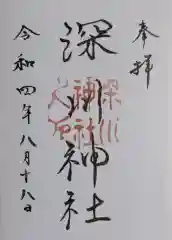 奉拝
深川神社
令和四年八月十八日
深川
神社